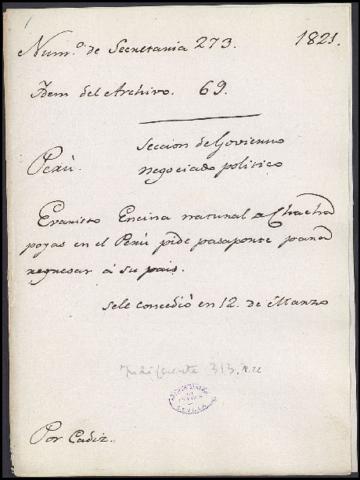 Num.º de Secretaria 273. 1821.
Idem del Archivo. 69.
Seccion de Govierno
Perú. negociado politico
Evaristo Encina natural de Chacha
poyas en el Perú pide pasaporte para
regresar á su pais.
sele concedió en 12. de Marzo
Indiferente 313.
Por Cadiz.